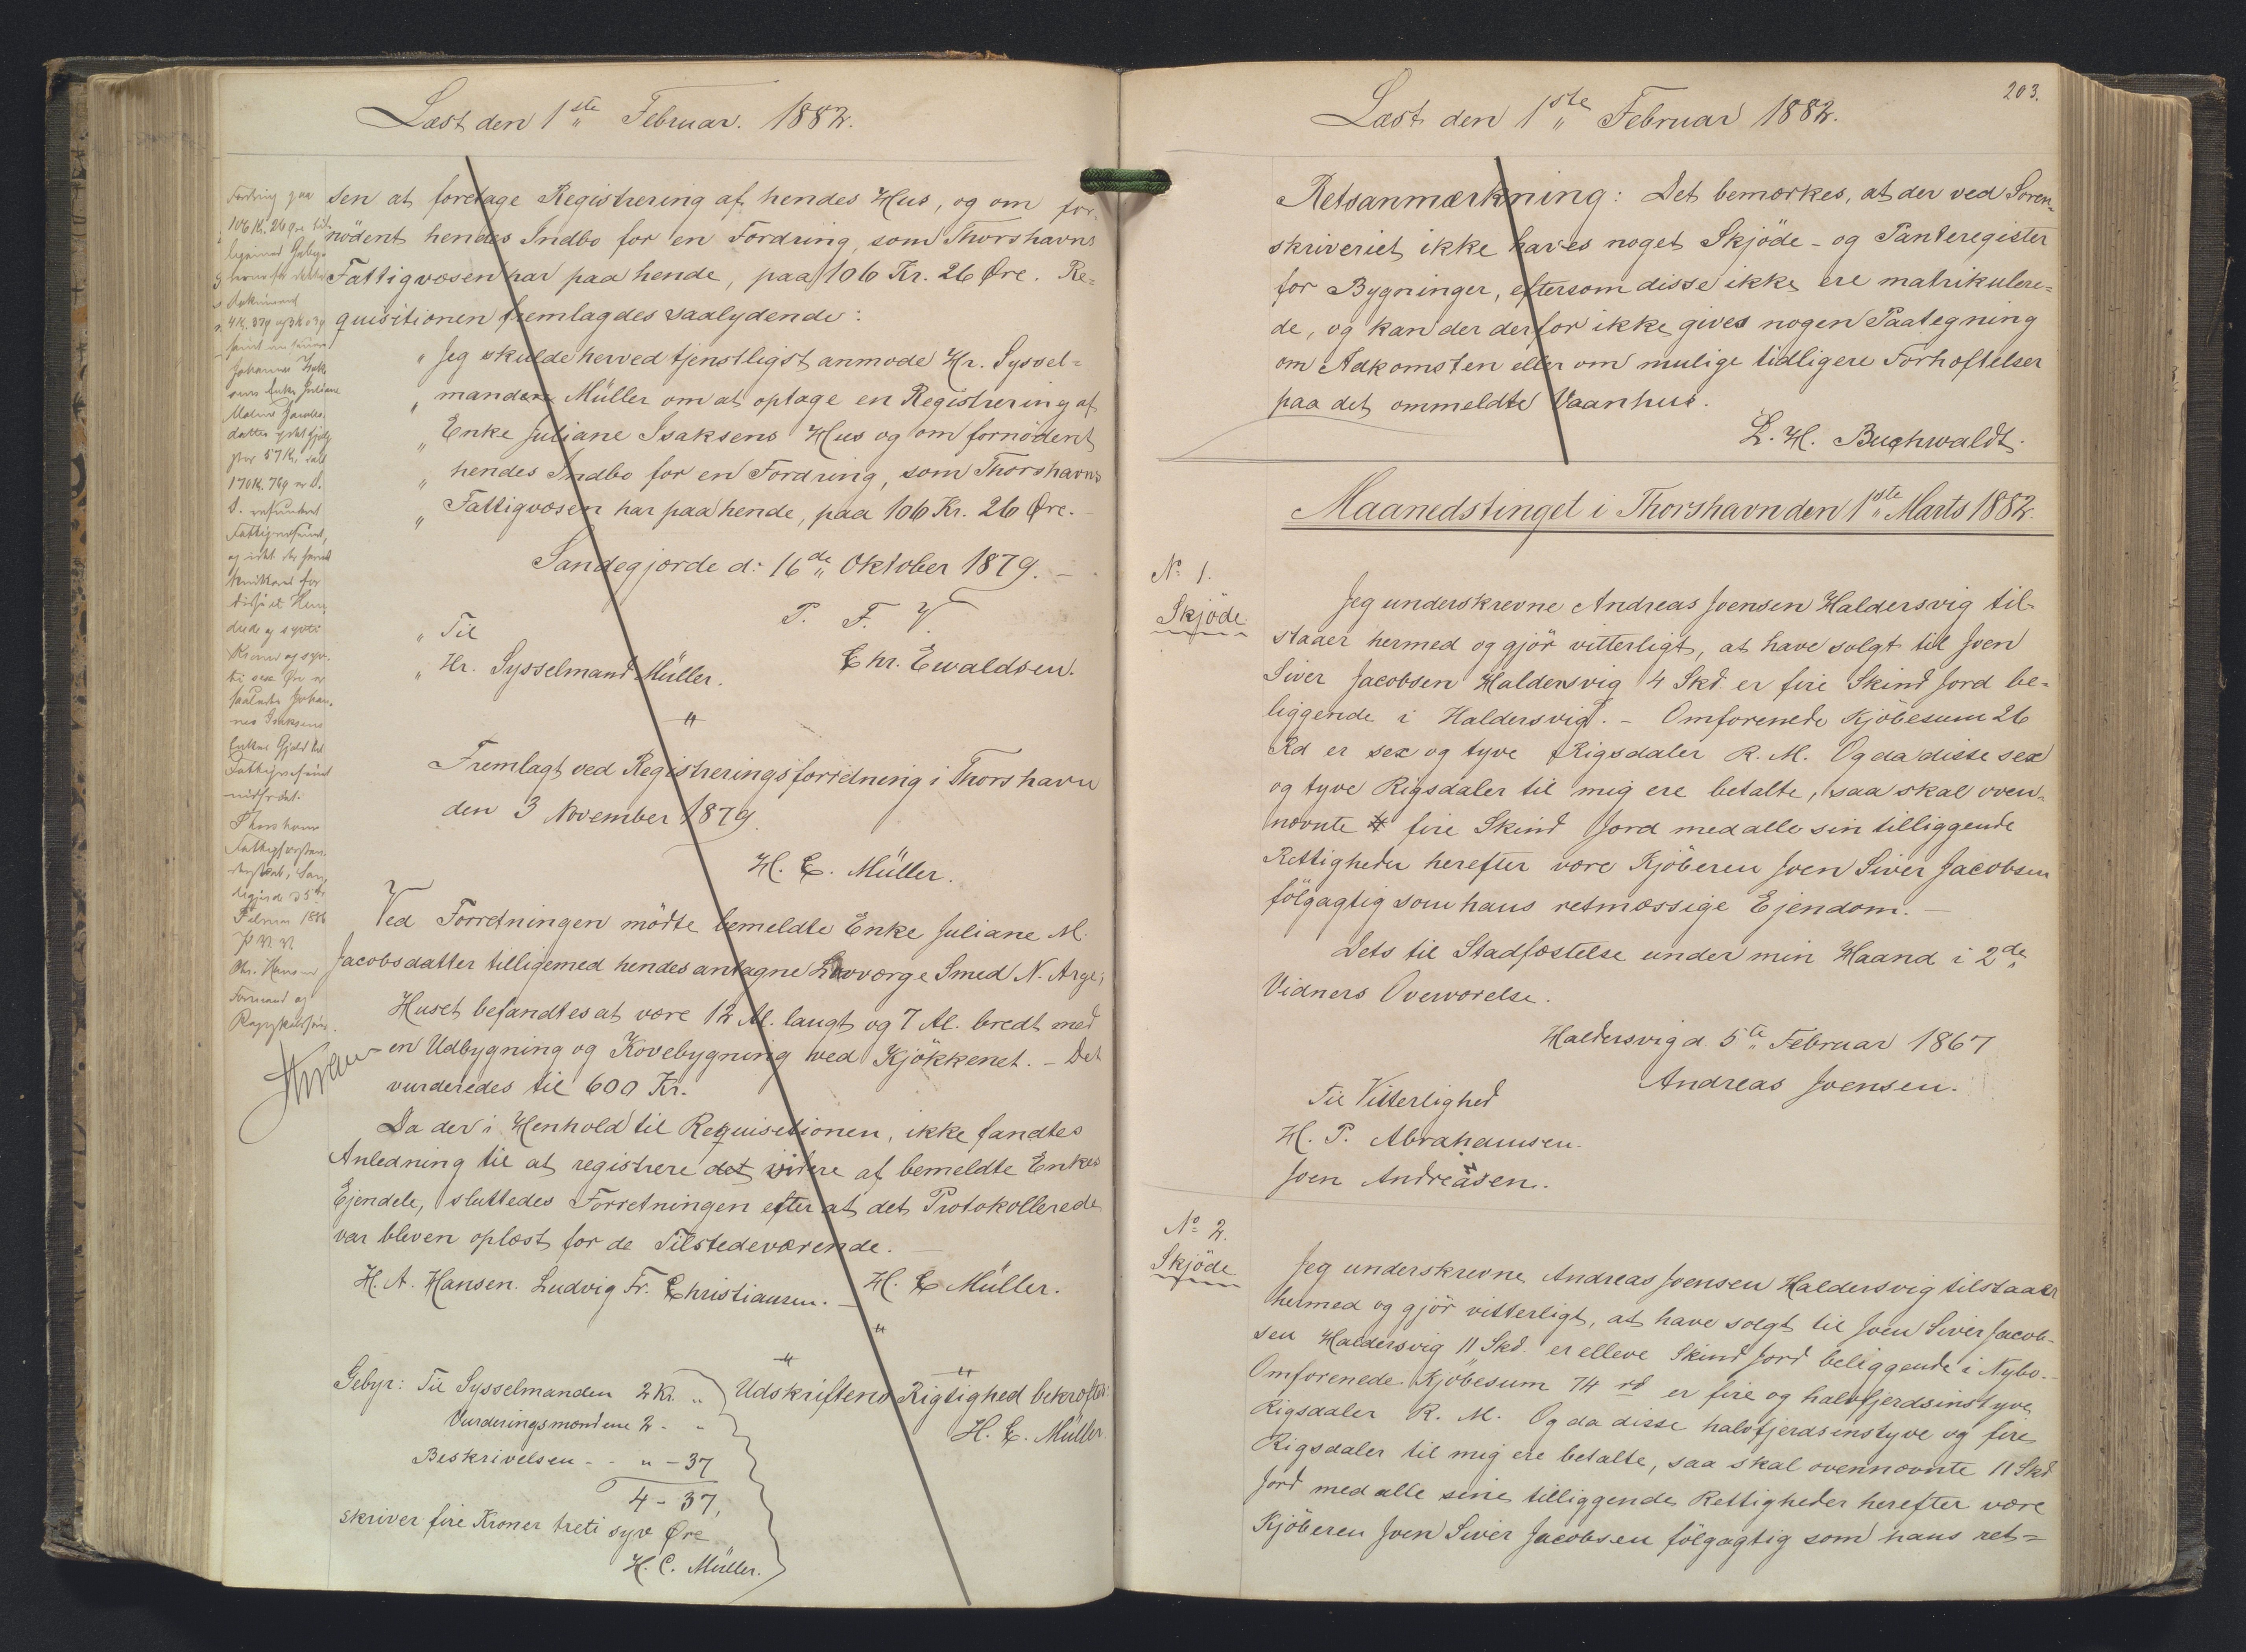 Læst den 1ste Februar. 1882.
sen at foretage Registrering af hendes Hus, og om for-
nödent hendes Indbo for en Fordring, som Thorshavns
Fattigvæsen har paa hende, paa 106 Kr. 26 Øre. Re=
quisitionen fremlagdes saalydende:
" Jeg skulde herved tjenstligst anmode Hr. Syssel=
" manden Müller om at optage en Registrering af
" Enke Juliane Isaksens Hus og om fornödent
" hendes Indbo for en Fordring, som Thorshavns
" Fattigvæsen har paa hende, paa 106 Kr. 26 Øre.
Sandegjærde d: 16de Oktober 1879. –
P. F. V.
" Til
Chr. Ewaldsen.
" Hr. Sysselmand Müller.
Fremlagt ved Registreringsforretning i Thorshavn
den 3 November 1879.
H. C. Müller.
Ved Forretningen mödte bemeldte Enke Juliane M.
Jacobsdatter tilligemed hendes antagne Lavværge Smed N. Arge;
Huset befandtes at være 12 Al. langt og 7 Al. bredt med
en Udbygning og Kovebygning ved Kjökkenet. – Det
vurderedes til 600 Kr.
Da der i Henhold til Requisitionen, ikke fandtes
Anledning til at registrere det videre af bemeldte Enkes
Ejendele, sluttedes Forretningen efter at det Protokollerede
var bleven oplæst for de Tilstedeværende.
H. A. Hansen. Ludvig Fr. Christiansen. – H. C Müller.
Gebyr: Til Sysselmanden 2 Kr. "
Vurderingsmændene 2 - "
Beskrivelsen - - " - 37
4 - 37,
skriver fire Kroner treti syv Øre
H. C. Müller.
Udskriftens Rigtighed bekræftes:
H. C. Müller.
Fordring paa
106 K. 26 Øre til-
ligemed Geby-
Johannes Isak-
Enke Juliane
Thorshavn
Februar 1886
Formand og
203.
Læst den 1ste Februar 1882.
Retsanmærkning: Det bemærkes, at der ved Soren=
skriveriet ikke haves noget Skjöde- og Panteregister
for Bygninger, eftersom disse ikke ere matrikulere=
de, og kan der derfor ikke gives nogen Paategning
om Adkomsten eller om mulige tidligere Forhæftelser
paa det ommeldte Vaanhus.
L. H. Buchwaldt.
Maanedstinget i Thorshavn den 1ste Marts 1882.
No 1.
Skjöde
Jeg underskrevne Andreas Joensen Haldersvig til-
staaer hermed og gjör vitterligt, at have solgt til Joen
Siver Jacobsen Haldersvig 4 Skd. er fire Skind Jord be-
liggende i Haldersvig. – Omforenede Kjöbesum 26
Rd er sex og tyve Rigsdaler R. M. Og da disse sex
og tyve Rigsdaler til mig ere betalte, saa skal oven-
nævnte 4 fire Skind Jord med alle sin tilliggende
Rettigheder herefter være Kjöberen Joen Siver Jacobsen
fölgagtig som hans retmæssige Ejendom. –
Dets til Stadfæstelse under min Haand i 2de
Vidners Overværelse.
Haldersvig d. 5te Februar 1867
Andreas Joensen.
Til Vitterlighed
H. P. Abrahamsen.
Joen Andreasen.
No 2.
Skjöde
Jeg underskrevne Andreas Joensen Haldersvig tilstaaer
hermed og gjör vitterligt, at have solgt til Joen Siver Jacob-
sen Haldersvig 11 Skd. er elleve Skind Jord beliggende i Nybo.-
Omforenede Kjöbesum 74 rd er fire og halvfjerdsinstyve
Rigsdaler R. M. Og da disse halvfjerdsinstyve og fire
Rigsdaler til mig ere betalte, saa skal ovennævnte 11 Skd
Jord med alle sine tilliggende Rettigheder herefter være
Kjöberen Joen Siver Jacobsen fölgagtig som hans ret=